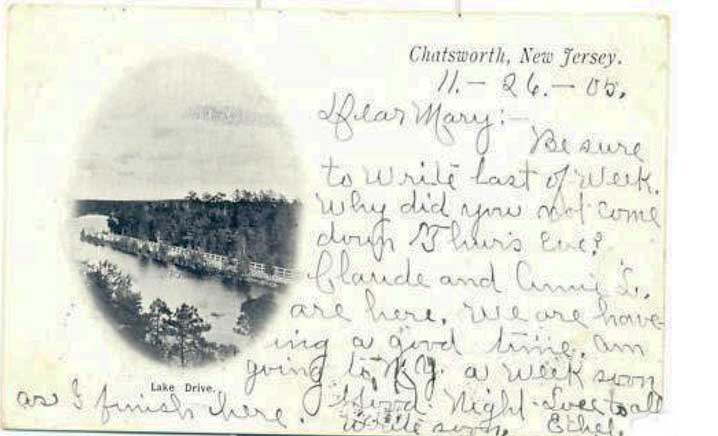 Chatsworth, New Jersey.
11.- 26.- 05.
Dear Mary:-
Be sure
to write last of week.
Why did you not come
down Thurs Eve?
Claude and Annie L.
are here. We are have-
ing a good time. Am
going to N.Y. a week soon
as I finish here. Good Night - Love to all
Write soon. Ethel.
Lake Drive.